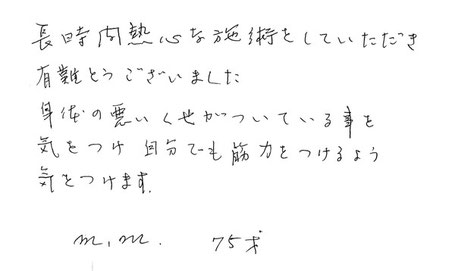 長時間熱心な施術をしていただき
有難とうございました
身体の悪いくせがついている事を
気をつけ 自分でも筋力をつけるよう
気をつけます.
m.m. 75才